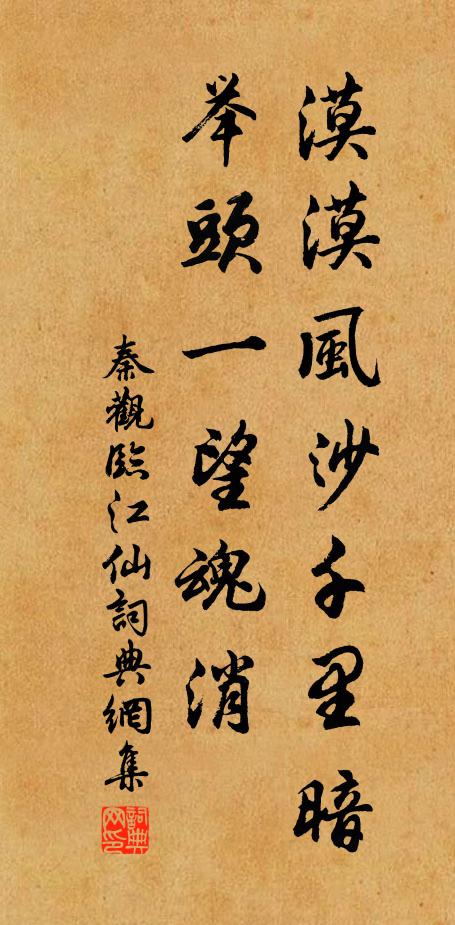 漠漠風沙千里暗
举頭一望魂消
秦觀臨江仙詞典網集
詞典
网印